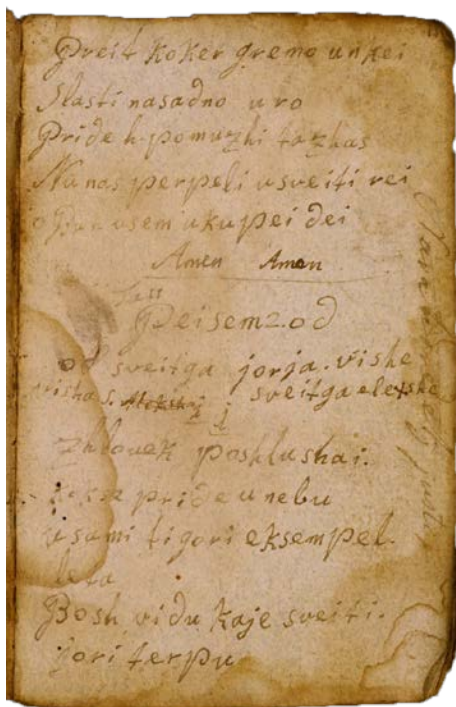 Preit koker gremo unkei
Slasti nasadno uro
Pride h. pomuzhi ta zhas
Nu nas perpeli usveiti rei
usem ukupei dei
Amen Amen
Peisem 2. od
od sveitga jorja. vishe
S. sveitga elexshe
zhlovek poshlushai.
pride u nebu
usami ti gori eksempel.
leta
Bosh vidu kaje sveiti.
jori terpu